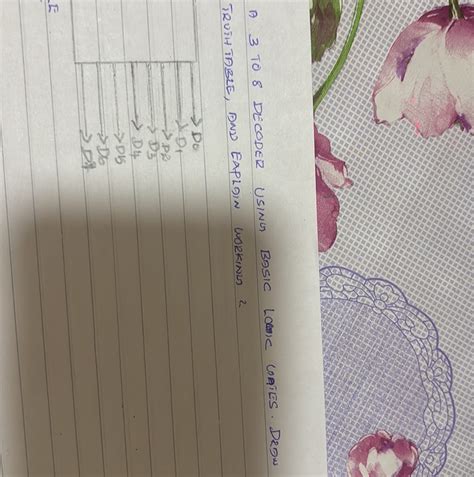 A 3 TO 8 DECODER USING BASIC LOGIC GATES. DRAW
TRUTH TABLE, AND EXPLAIN WORKING ?
D0
D1
D2
D3
D4
D5
D6
D7
LE